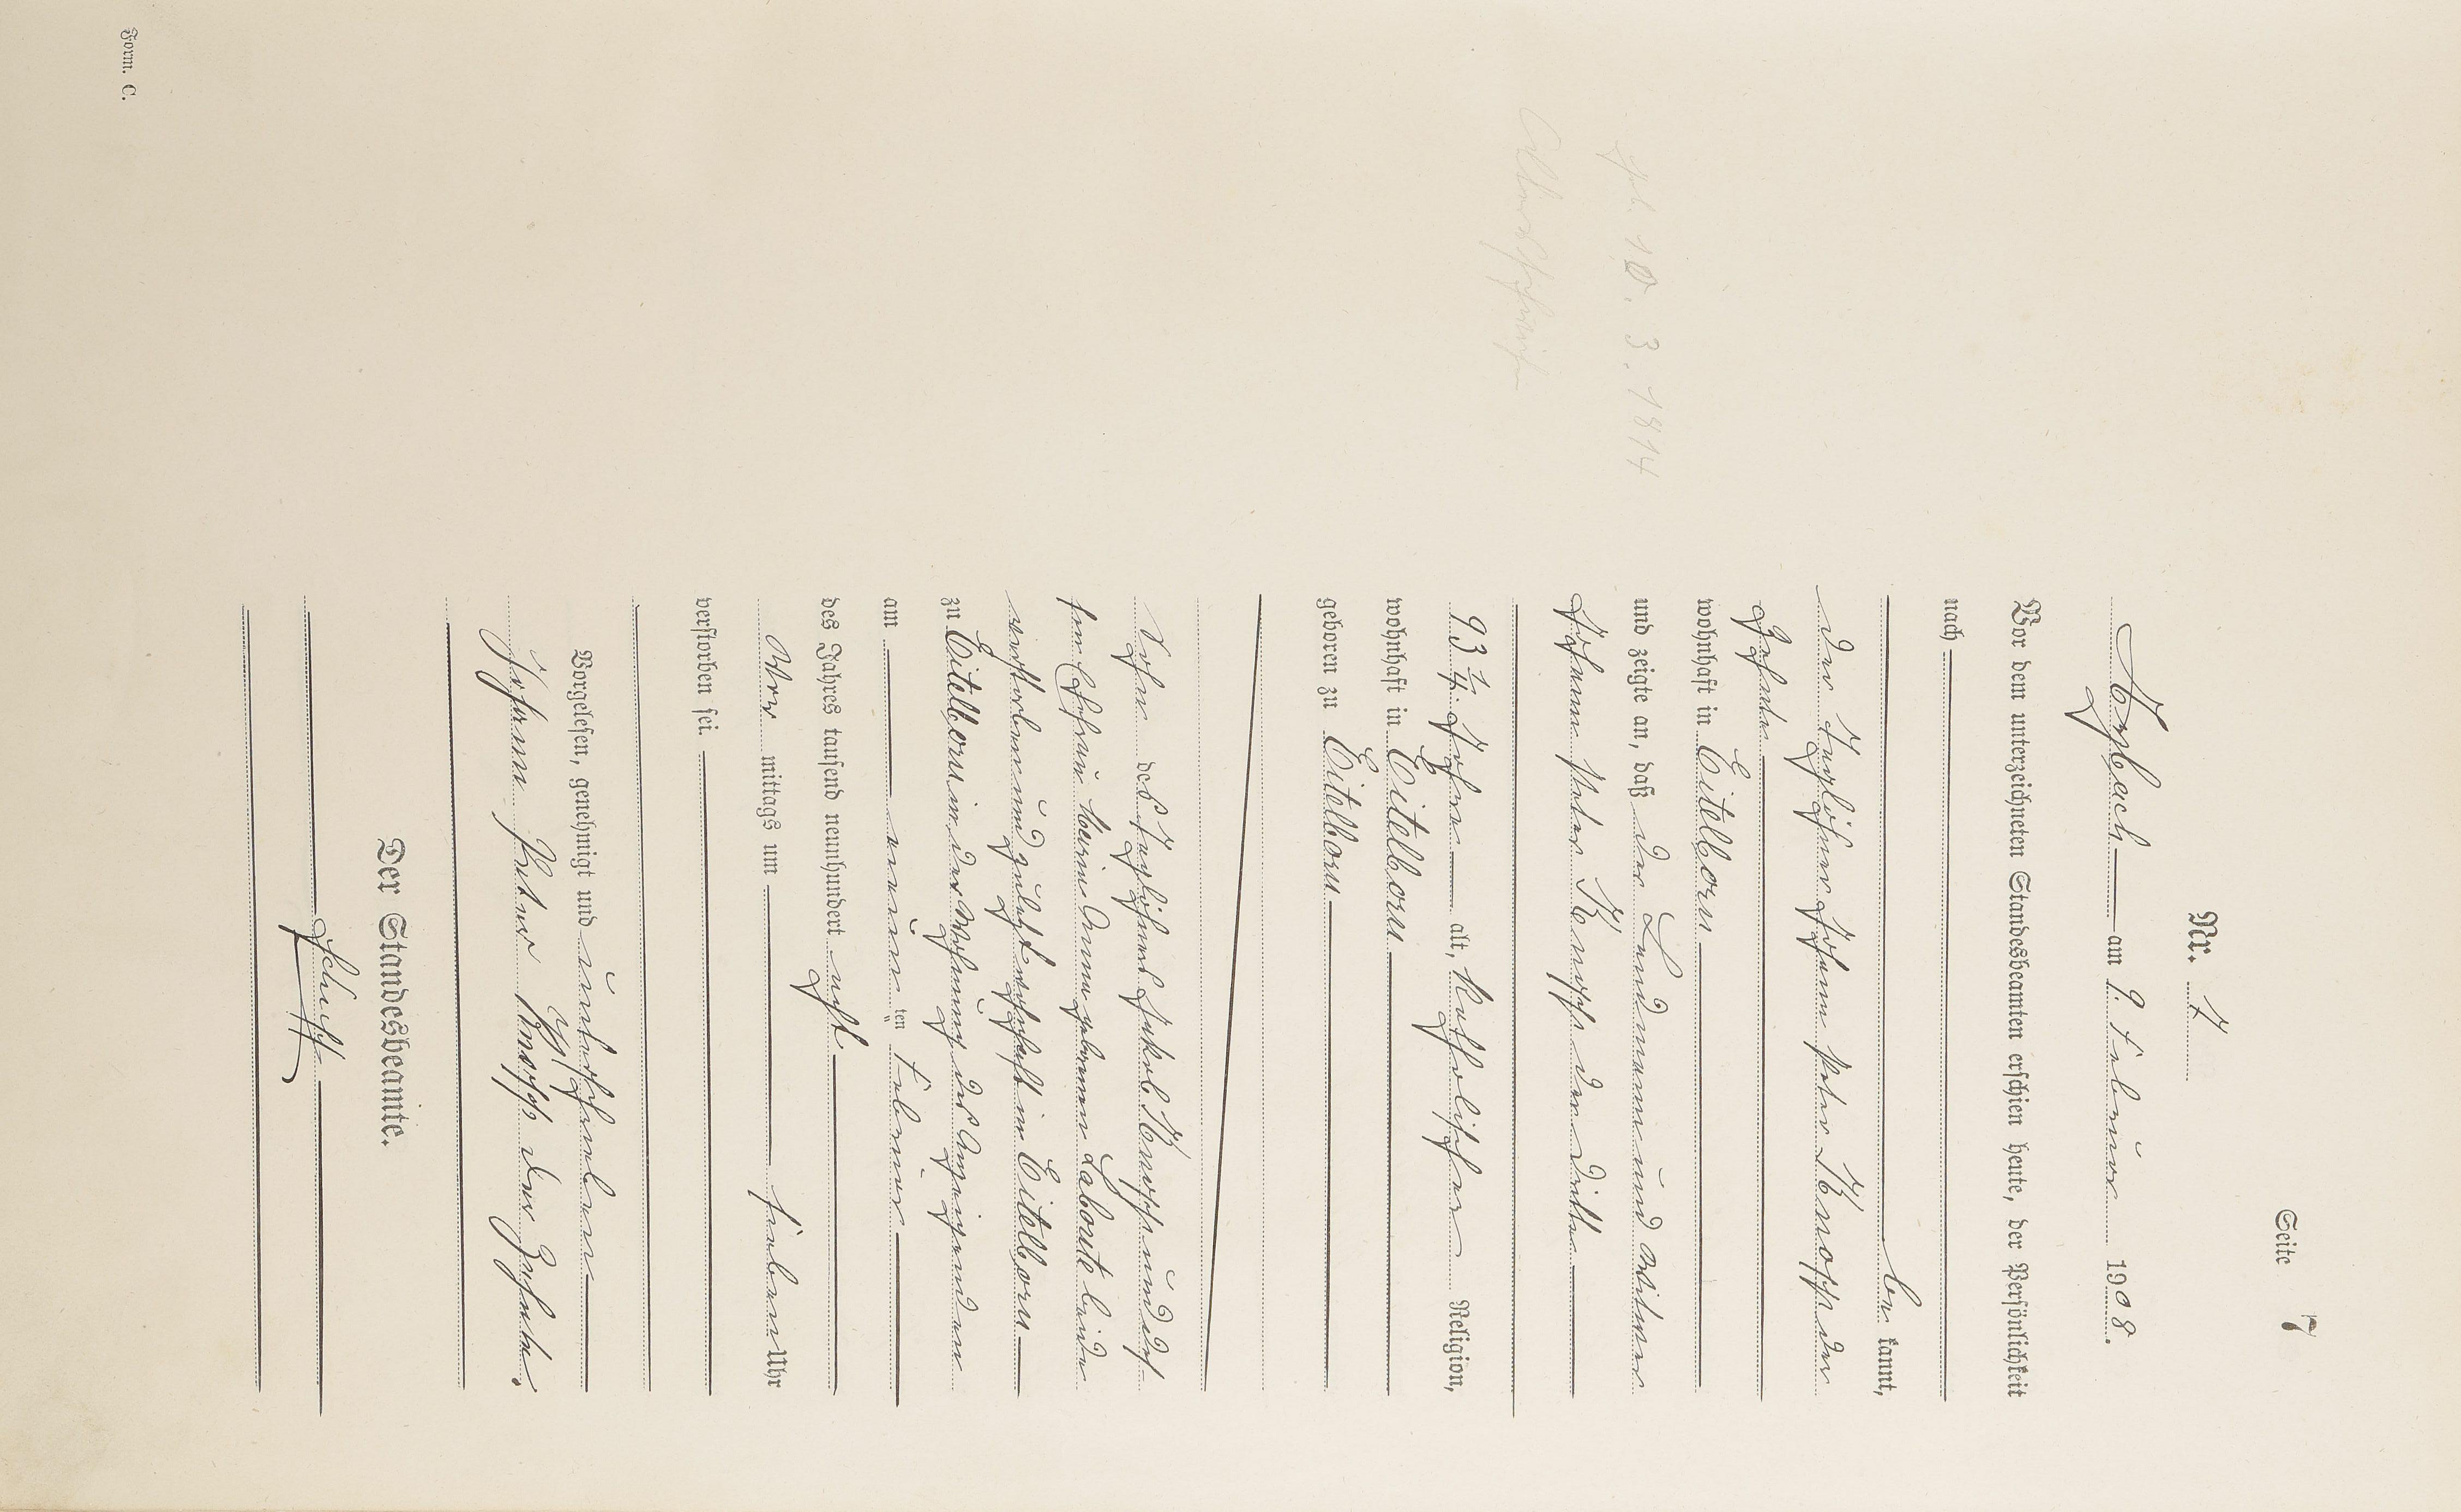 Seite 7
Nr. 7
Arzbach am 9. Februar 1908.
Vor dem unterzeichneten Standesbeamten erschien heute, der Persönlichkeit
nach
be kannt,
der Taglöhner Johann Peter Knopp der
Zehnte
wohnhaft in Eitelborn
und zeigte an, daß der Landmann und Witwer
Johann Peter Knopp der Dritte
93 3/4 Jahre alt, katholischer Religion,
wohnhaft in Eitelborn
geboren zu Eitelborn
Sohn des Taglöhners Jakob Knopp und des
sen Ehefrau Maria Anna geborenen Labonte beide
verstorben und zuletzt wohnhaft in Eitelborn
zu Eitelborn in der Wohnung des Anzeigenden
am neun ten Februar
des Jahres tausend neunhundert acht
Vor mittags um sieben Uhr
verstorben sei.
Vorgelesen, genehmigt und unterschrieben
Johann Peter Knopp der Zehnte.
Der Standesbeamte.
Schupp
geb. 10. 3. 1814
Form. C.